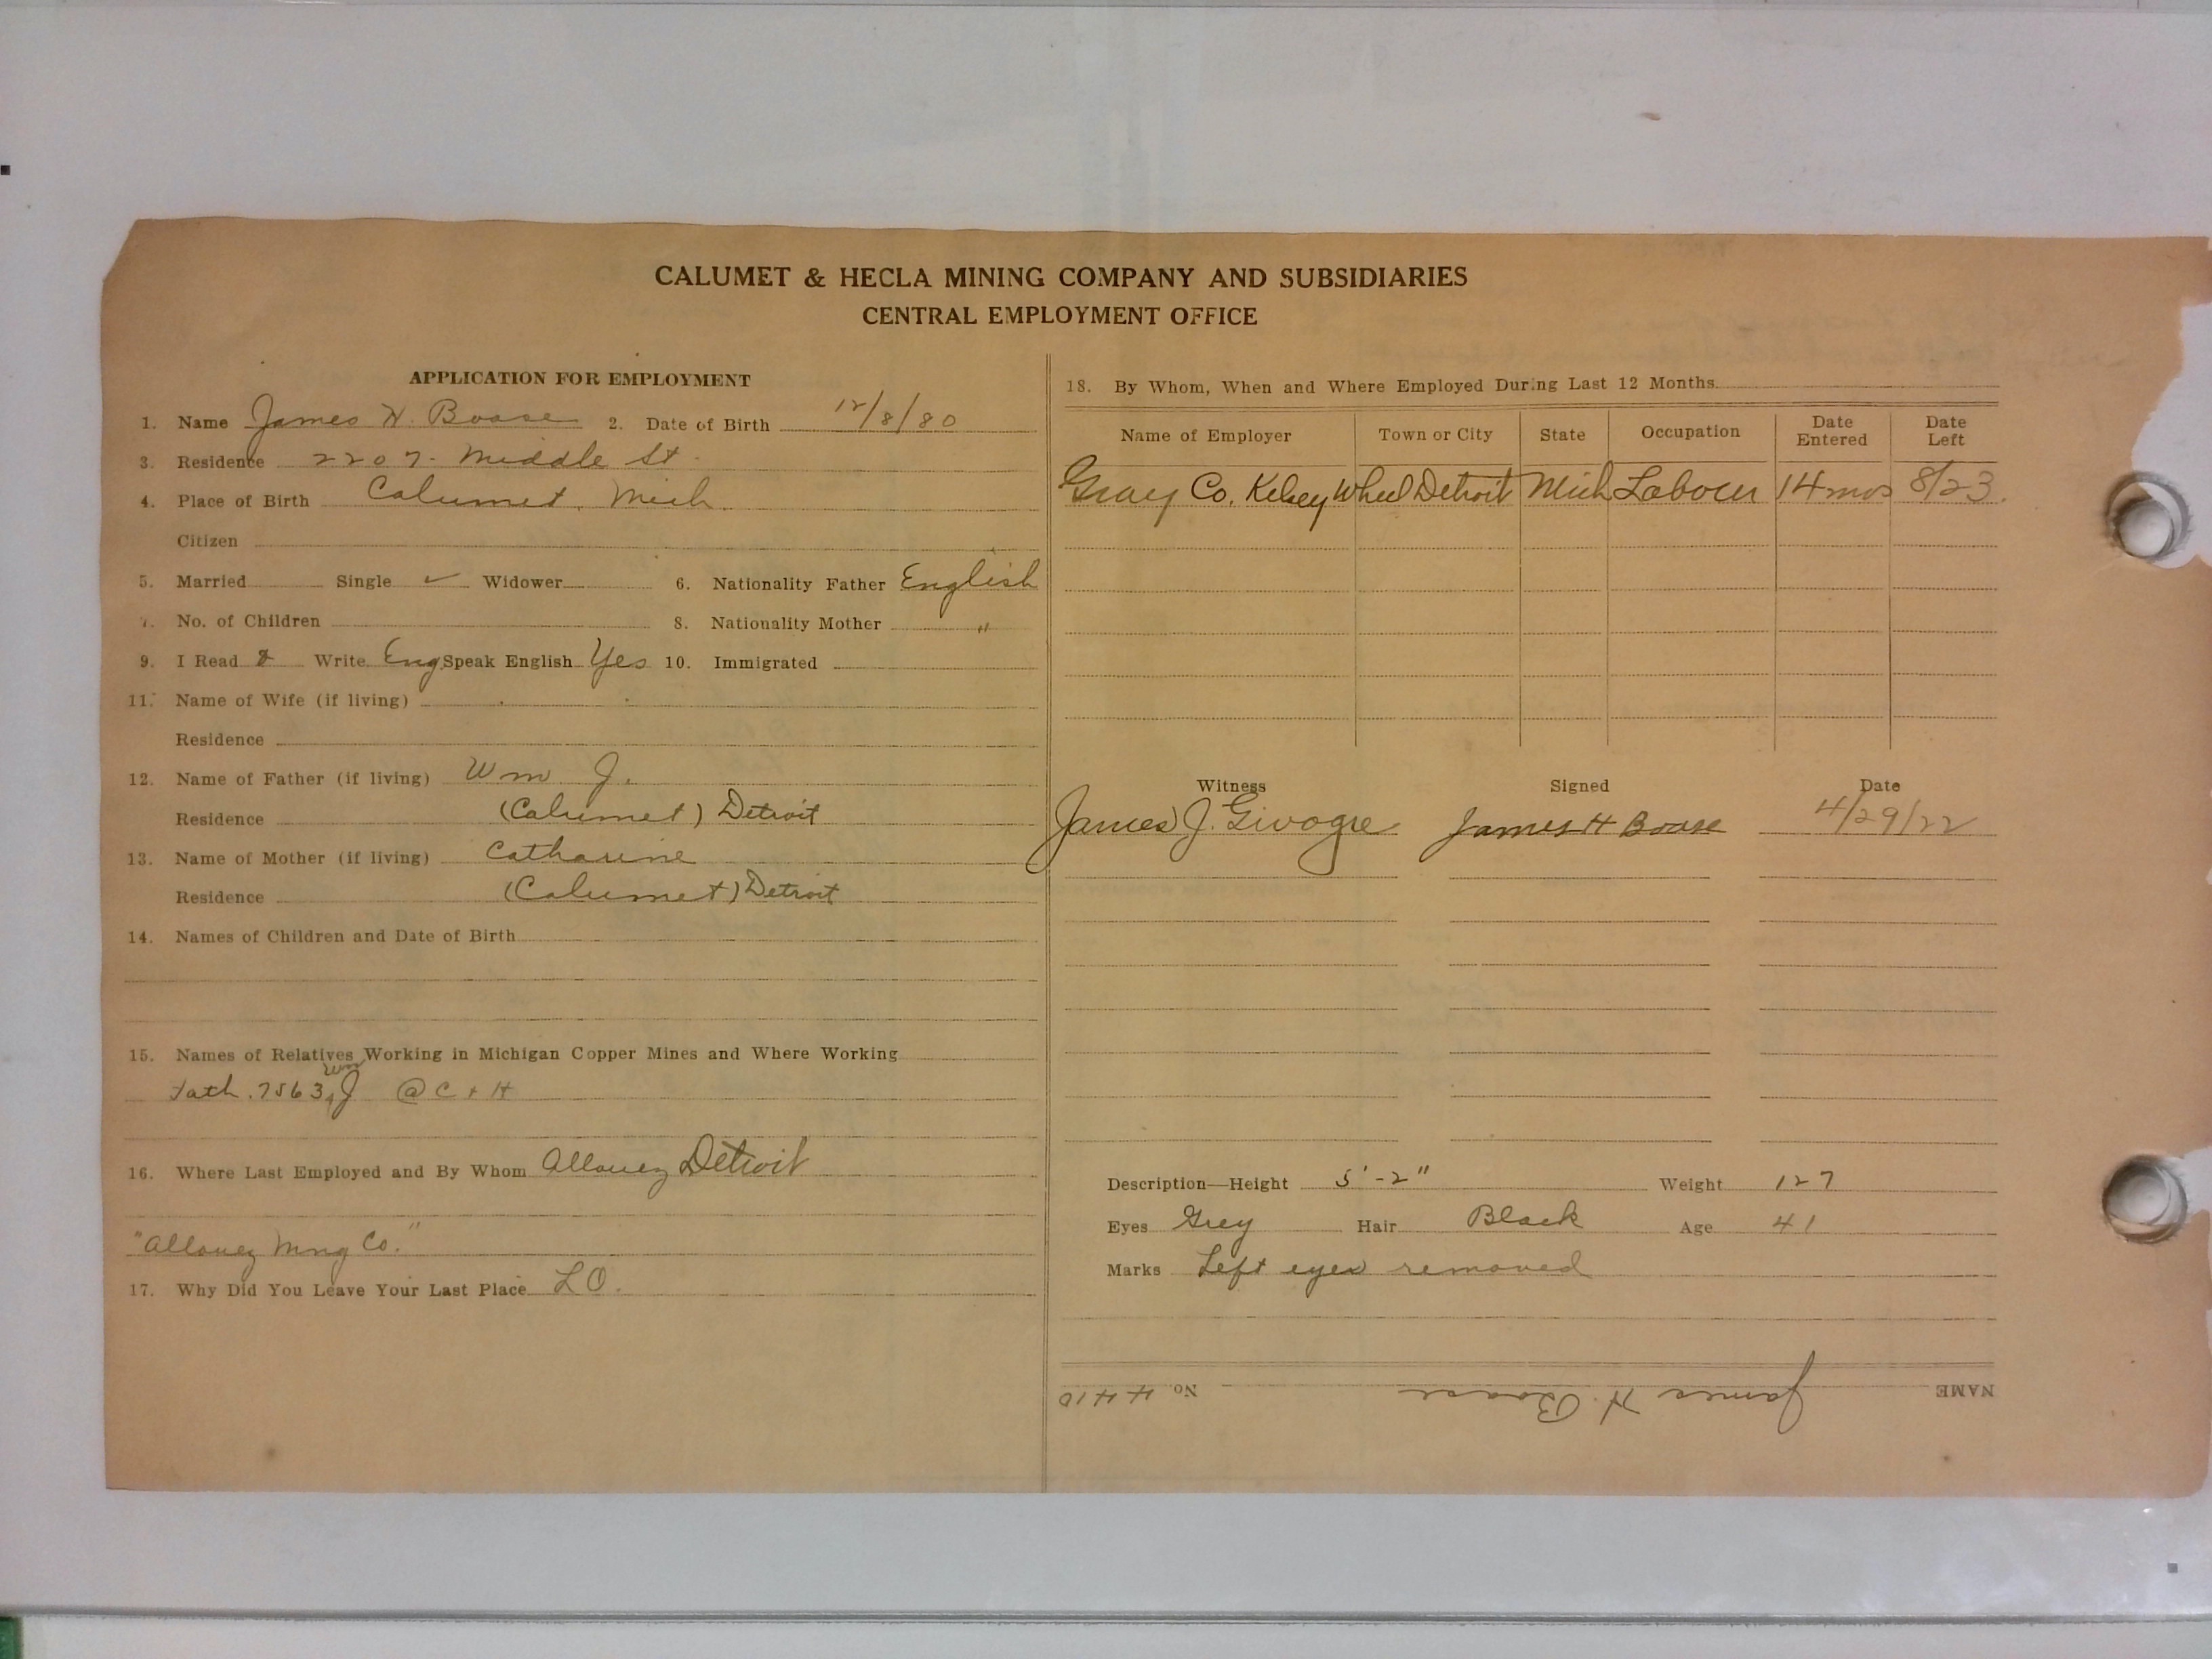 CALUMET & HECLA MINING COMPANY AND SUBSIDIARIES
CENTRAL EMPLOYMENT OFFICE
APPLICATION FOR EMPLOYMENT
1. Name James H. Boase 2. Date of Birth 12/8/80
3. Residence 2207- Middle St.
4. Place of Birth Calumet, Mich.
Citizen
5. Married Single ✓ Widower 6. Nationality Father English
7. No. of Children 8. Nationality Mother "
9. I Read & Write Eng. Speak English Yes 10. Immigrated
11. Name of Wife (if living)
Residence
12. Name of Father (if living) Wm J.
Residence (Calumet) Detroit
13. Name of Mother (if living) Catharine
Residence (Calumet) Detroit
14. Names of Children and Date of Birth
15. Names of Relatives Working in Michigan Copper Mines and Where Working
Wm
Fath. 7563 J @ C & H
16. Where Last Employed and By Whom Allouez Detroit
"Allouez Mng Co."
17. Why Did You Leave Your Last Place LO.
18. By Whom, When and Where Employed During Last 12 Months
Name of Employer Town or City State Occupation Date Entered Date Left
Gray Co. Kelsey Wheel Detroit Mich Labour 14 mos 8/23.
Witness Signed Date
James J. Givogre James H Boase 4/29/22
Description—Height 5'-2" Weight 127
Eyes Grey Hair Black Age 41
Marks Left eye removed
NAME James H. Boase No. 4410